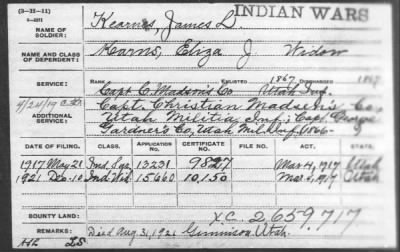 (3-H-11)
INDIAN WARS
NAME OF SOLDIER: Kearns, James D.
NAME AND CLASS OF DEPENDENT: Kearns, Eliza J. Widow
SERVICE: RANK ENLISTED 1867 DISCHARGED 1867
Capt C. Madson's Co Utah Inf.
4/24/19
ADDITIONAL SERVICE: Capt. Christian Madsen's Co,
Utah Militia Inf.; Capt George
Gardner's Co, Utah Mil. Inf. 1866-
DATE OF FILING. CLASS. APPLICATION NO. CERTIFICATE NO. LAW. ACT. STATE.
1917 May 21 Ind. Sur. 13231 9827 Mar 4, 1917 Utah
1921 Dec-10 Ind. Wid. 15660 10,150 Mar 4, 1917 Utah
BOUNTY LAND: XC. 2659,717
REMARKS: Died Aug. 31, 1921 Gunnison, Utah.